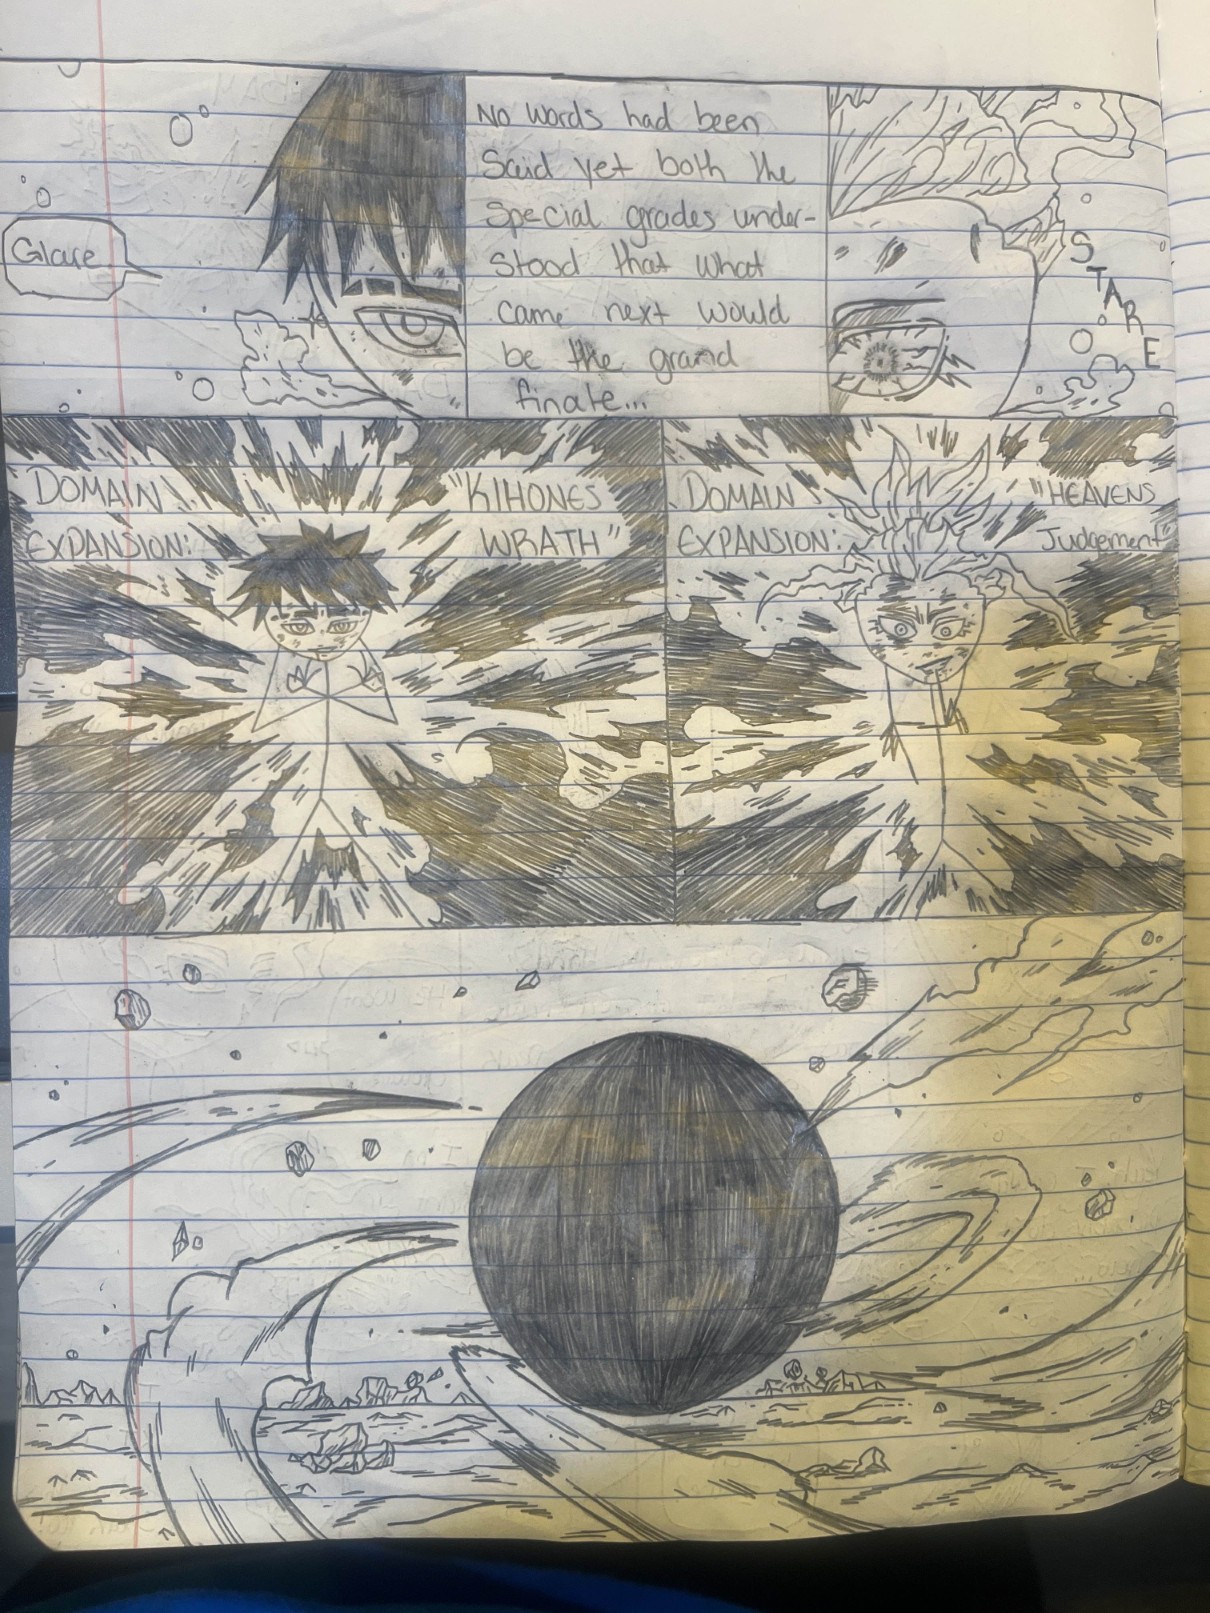 Glare
No words had been
Said yet both the
Special grades under-
stood that what
came next would
be the grand
finale...
STARE
DOMAIN
EXPANSION:
"KIHONES
WRATH"
DOMAIN
EXPANSION:
"HEAVENS
Judgement"